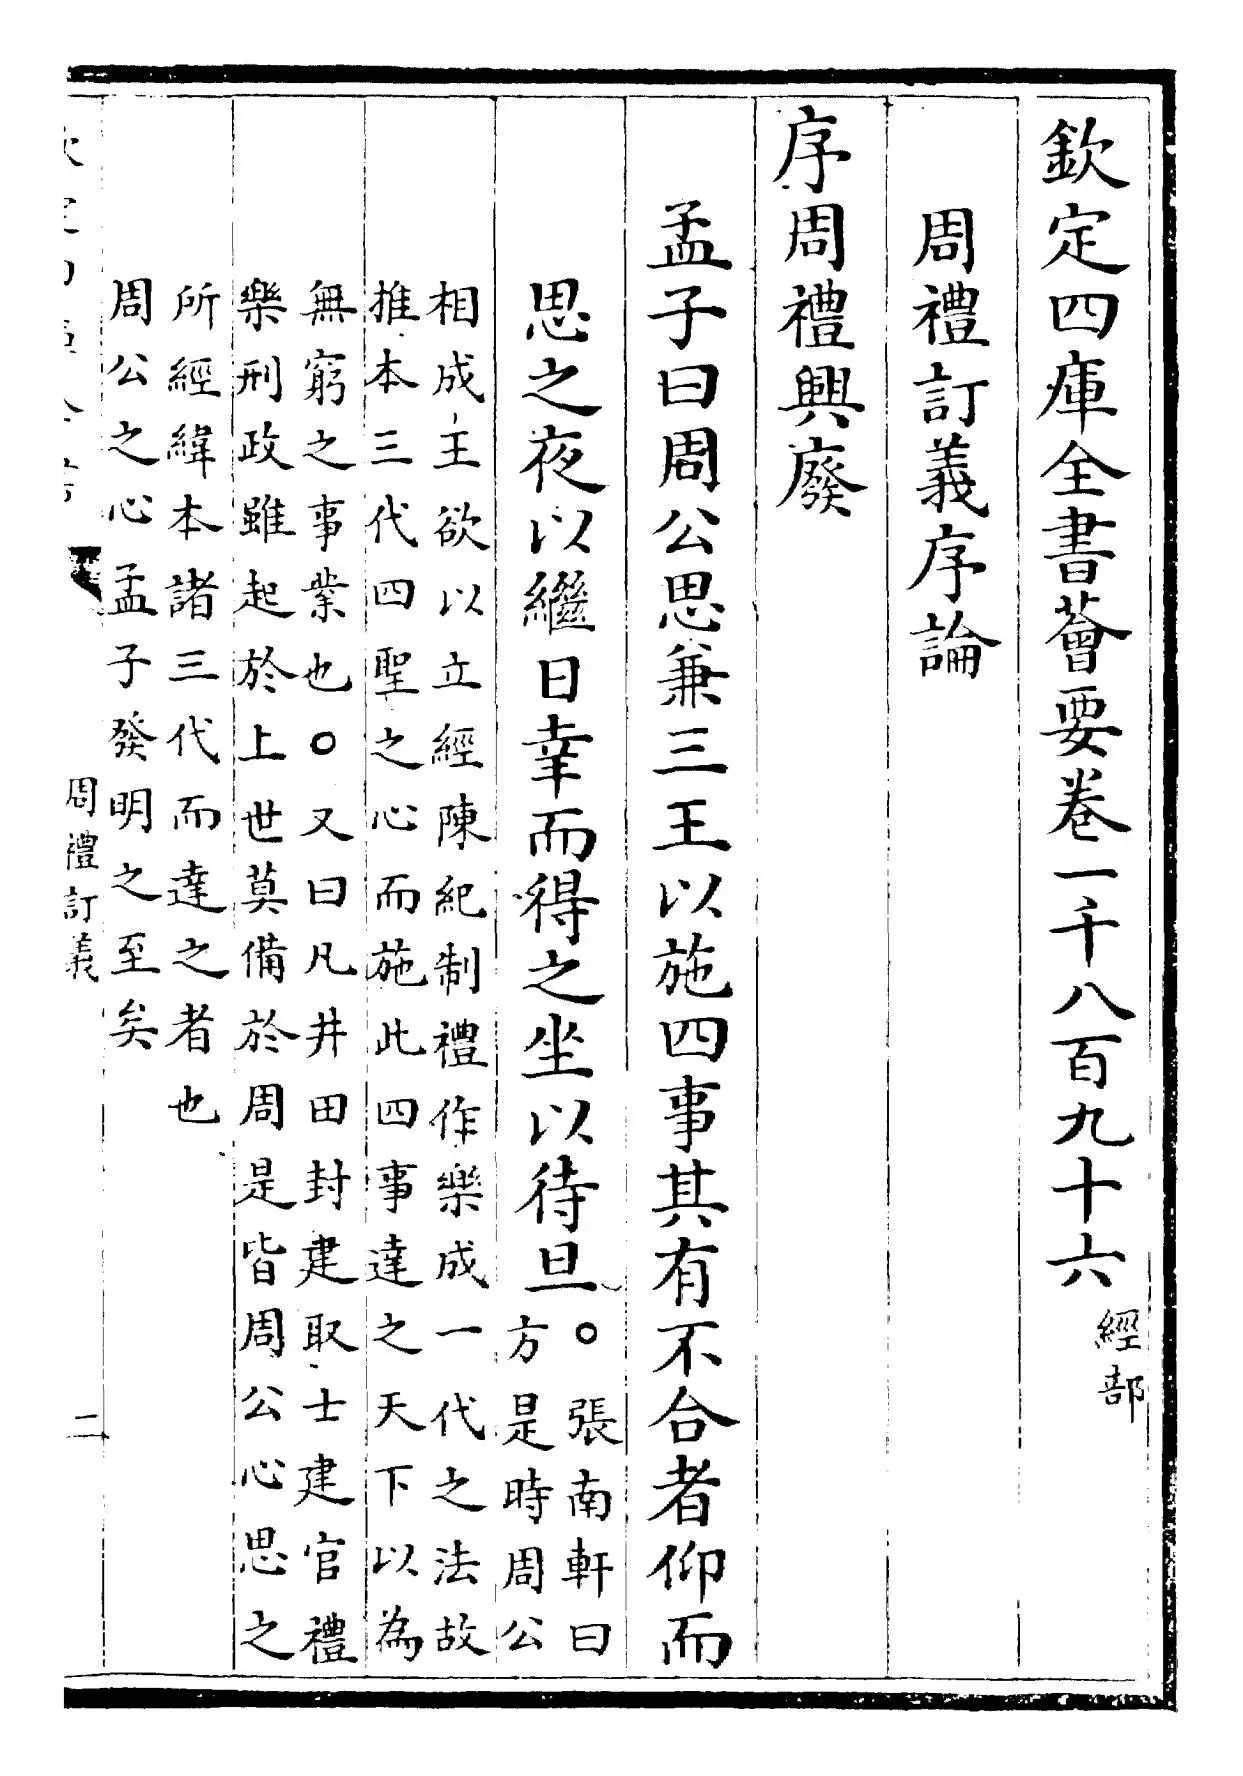 欽定四庫全書薈要卷一千八百九十六經部
周禮訂義序論
序周禮興廢
孟子曰周公思兼三王以施四事其有不合者仰而
思之夜以繼日幸而得之坐以待旦
○張南軒曰
方是時周公
相成王欲以立經陳紀制禮作樂成一代之法故
推本三代四聖之心而施此四事達之天下以為
無窮之事業也○又曰凡井田封建取士建官禮
樂刑政雖起於上世莫備於周是皆周公心思之
所經緯本諸三代而達之者也
周公之心孟子發明之至矣
周禮訂義
二